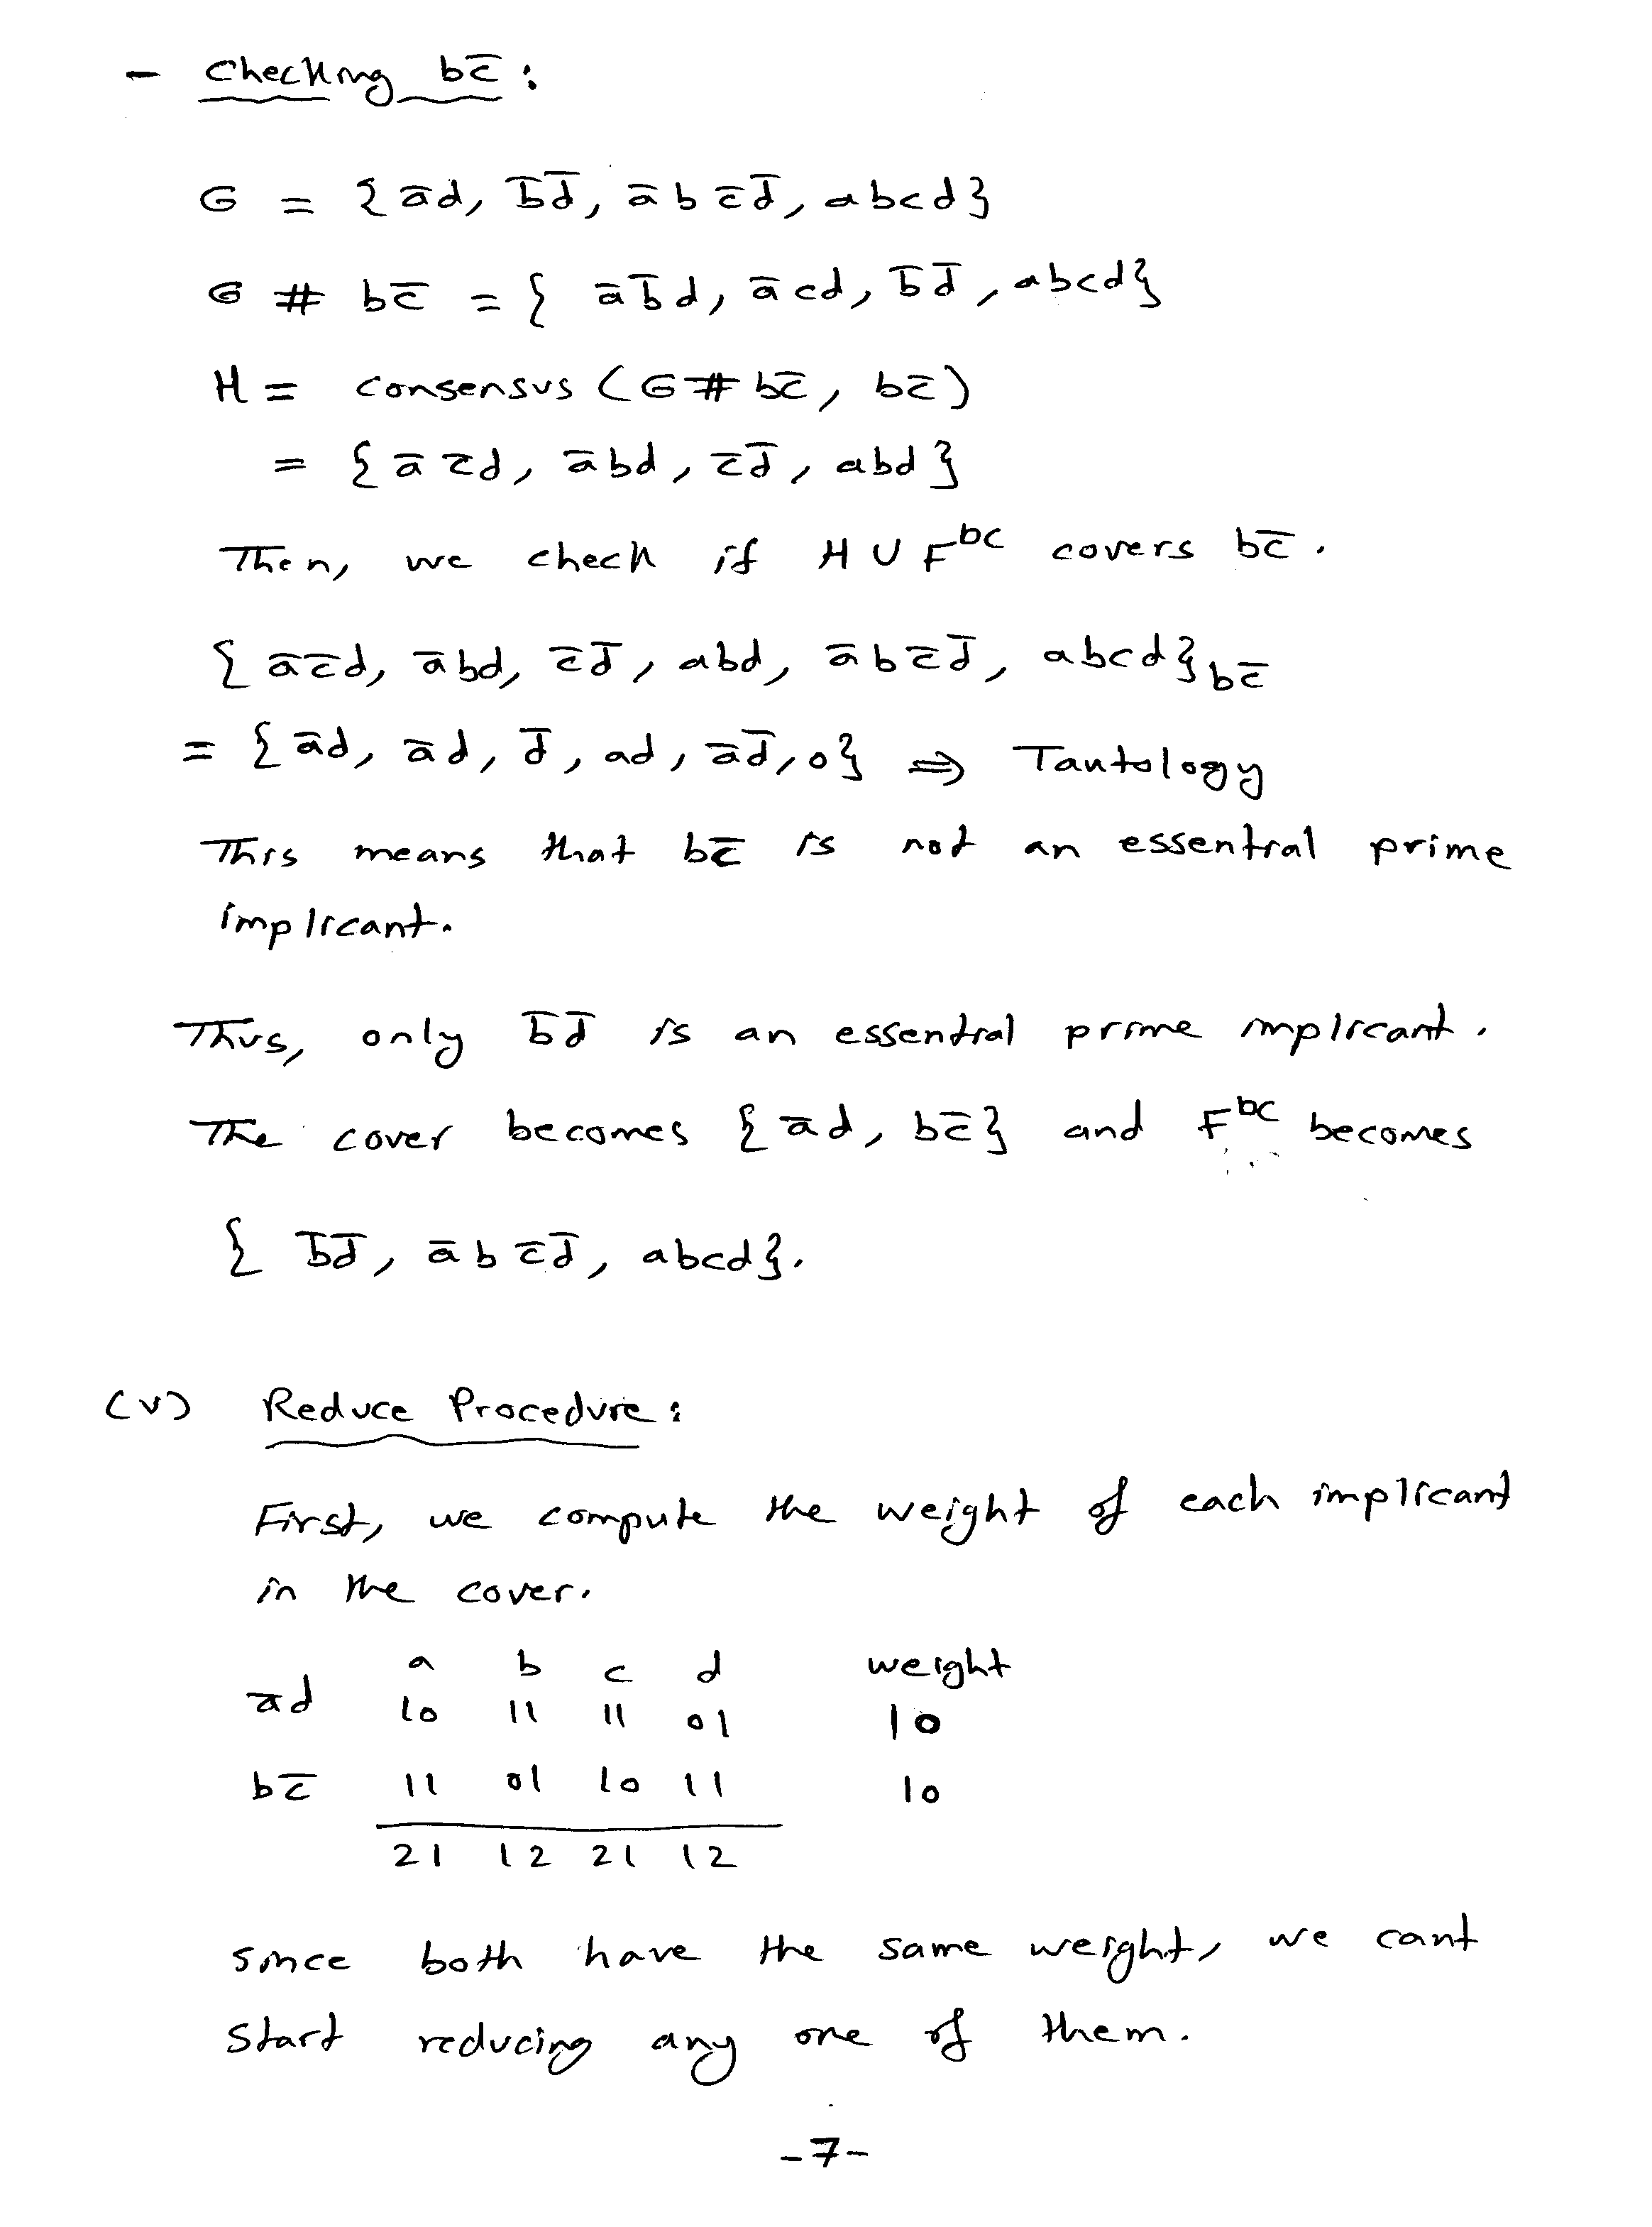 - Checking bc̅ :
G = {a̅d, b̅d̅, a̅bc̅d̅, abcd}
G # bc̅ = { a̅b̅d, a̅cd, b̅d̅, abcd}
H = consensus (G # bc̅, bc̅)
= {a̅c̅d, a̅bd, c̅d̅, abd}
Then, we check if H ∪ F^DC covers bc̅.
{a̅c̅d, a̅bd, c̅d̅, abd, a̅bc̅d̅, abcd}bc̅
= {a̅d, a̅d, d̅, ad, a̅d̅, 0} ⇒ Tautology
This means that bc̅ is not an essential prime
implicant.
Thus, only b̅d̅ is an essential prime implicant.
The cover becomes {a̅d, bc̅} and F^DC becomes
{ b̅d̅, a̅bc̅d̅, abcd}.
(v) Reduce Procedure:
First, we compute the weight of each implicant
in the cover.
a b c d weight
a̅d 10 11 11 01 10
bc̅ 11 01 10 11 10
21 12 21 12
Since both have the same weight, we cant
start reducing any one of them.
-7-